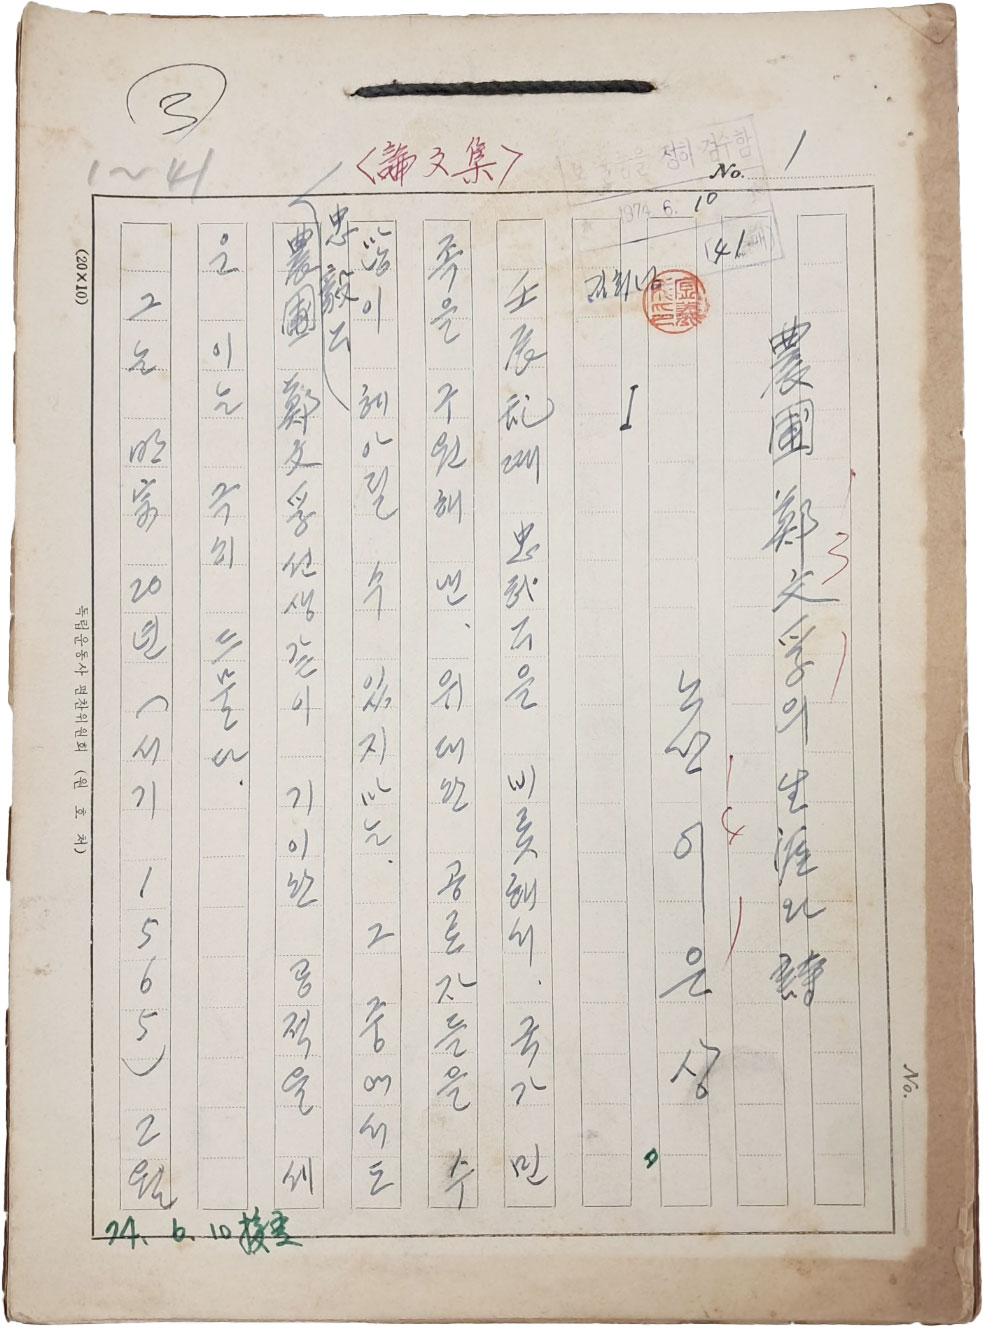 ③
1~41
<論文集>
보훈물을 정히 검수함
1974. 6. 10
41매
No. 1
農圃 鄭文孚의 生涯와 詩
3
노산 이은상
4
김희남
I
壬辰亂때 忠武公을 비롯해서. 국가 민
족을 구원해 낸. 위대한 공로자들을 수
많이 헤아릴 수 있지마는. 그 중에서도
忠毅公
農圃 鄭文孚선생같이 기이한 공적을 세
운 이는 극히 드물다.
그는 明宗 20년 (서기 1565) 2월
(20×10)
독립운동사 편찬위원회 (원호처)
74. 6. 10 接受
No.